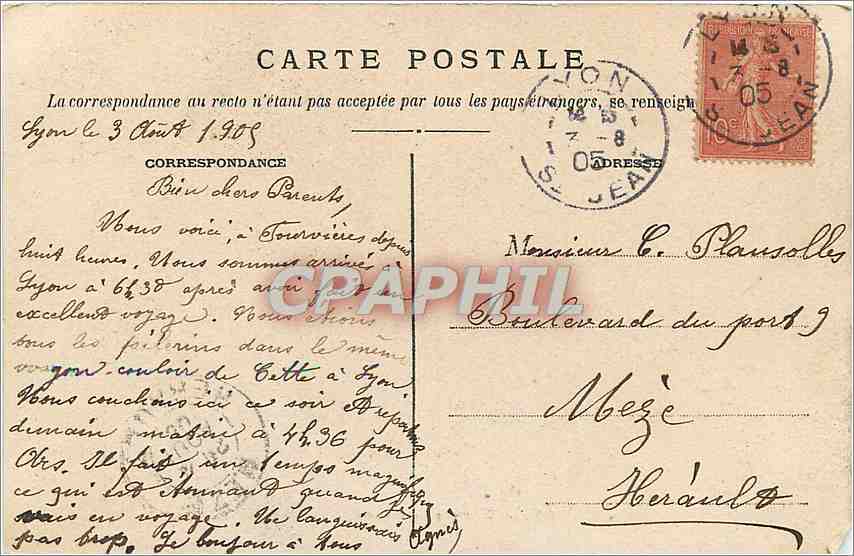 CARTE POSTALE
La correspondance au recto n'étant pas acceptée par tous les pays étrangers, se renseign
Lyon le 3 Août 1905
CORRESPONDANCE
Bien chers Parents,
Nous voici, à Fourvières depuis
huit heures. Nous sommes arrivés à
Lyon à 6h30 après avoir fait un
excellent voyage. Nous étions
tous les pèlerins dans le même
wagon-couloir de Cette à Lyon
Nous couchons ici ce soir et repartons
demain matin à 4h36 pour
Ars. Il fait un temps magnifique
ce qui est étonnant quand je
vais en voyage. Ne languissais
pas trop. Le bonjour à tous
Agnès
ADRESSE
Monsieur C. Plausolles
Boulevard du port 9
Mèze
Hérault
LYON
3 - 8
05
ST JEAN
LYON
3 - 8
05
JEAN
10c
CPAPHIL